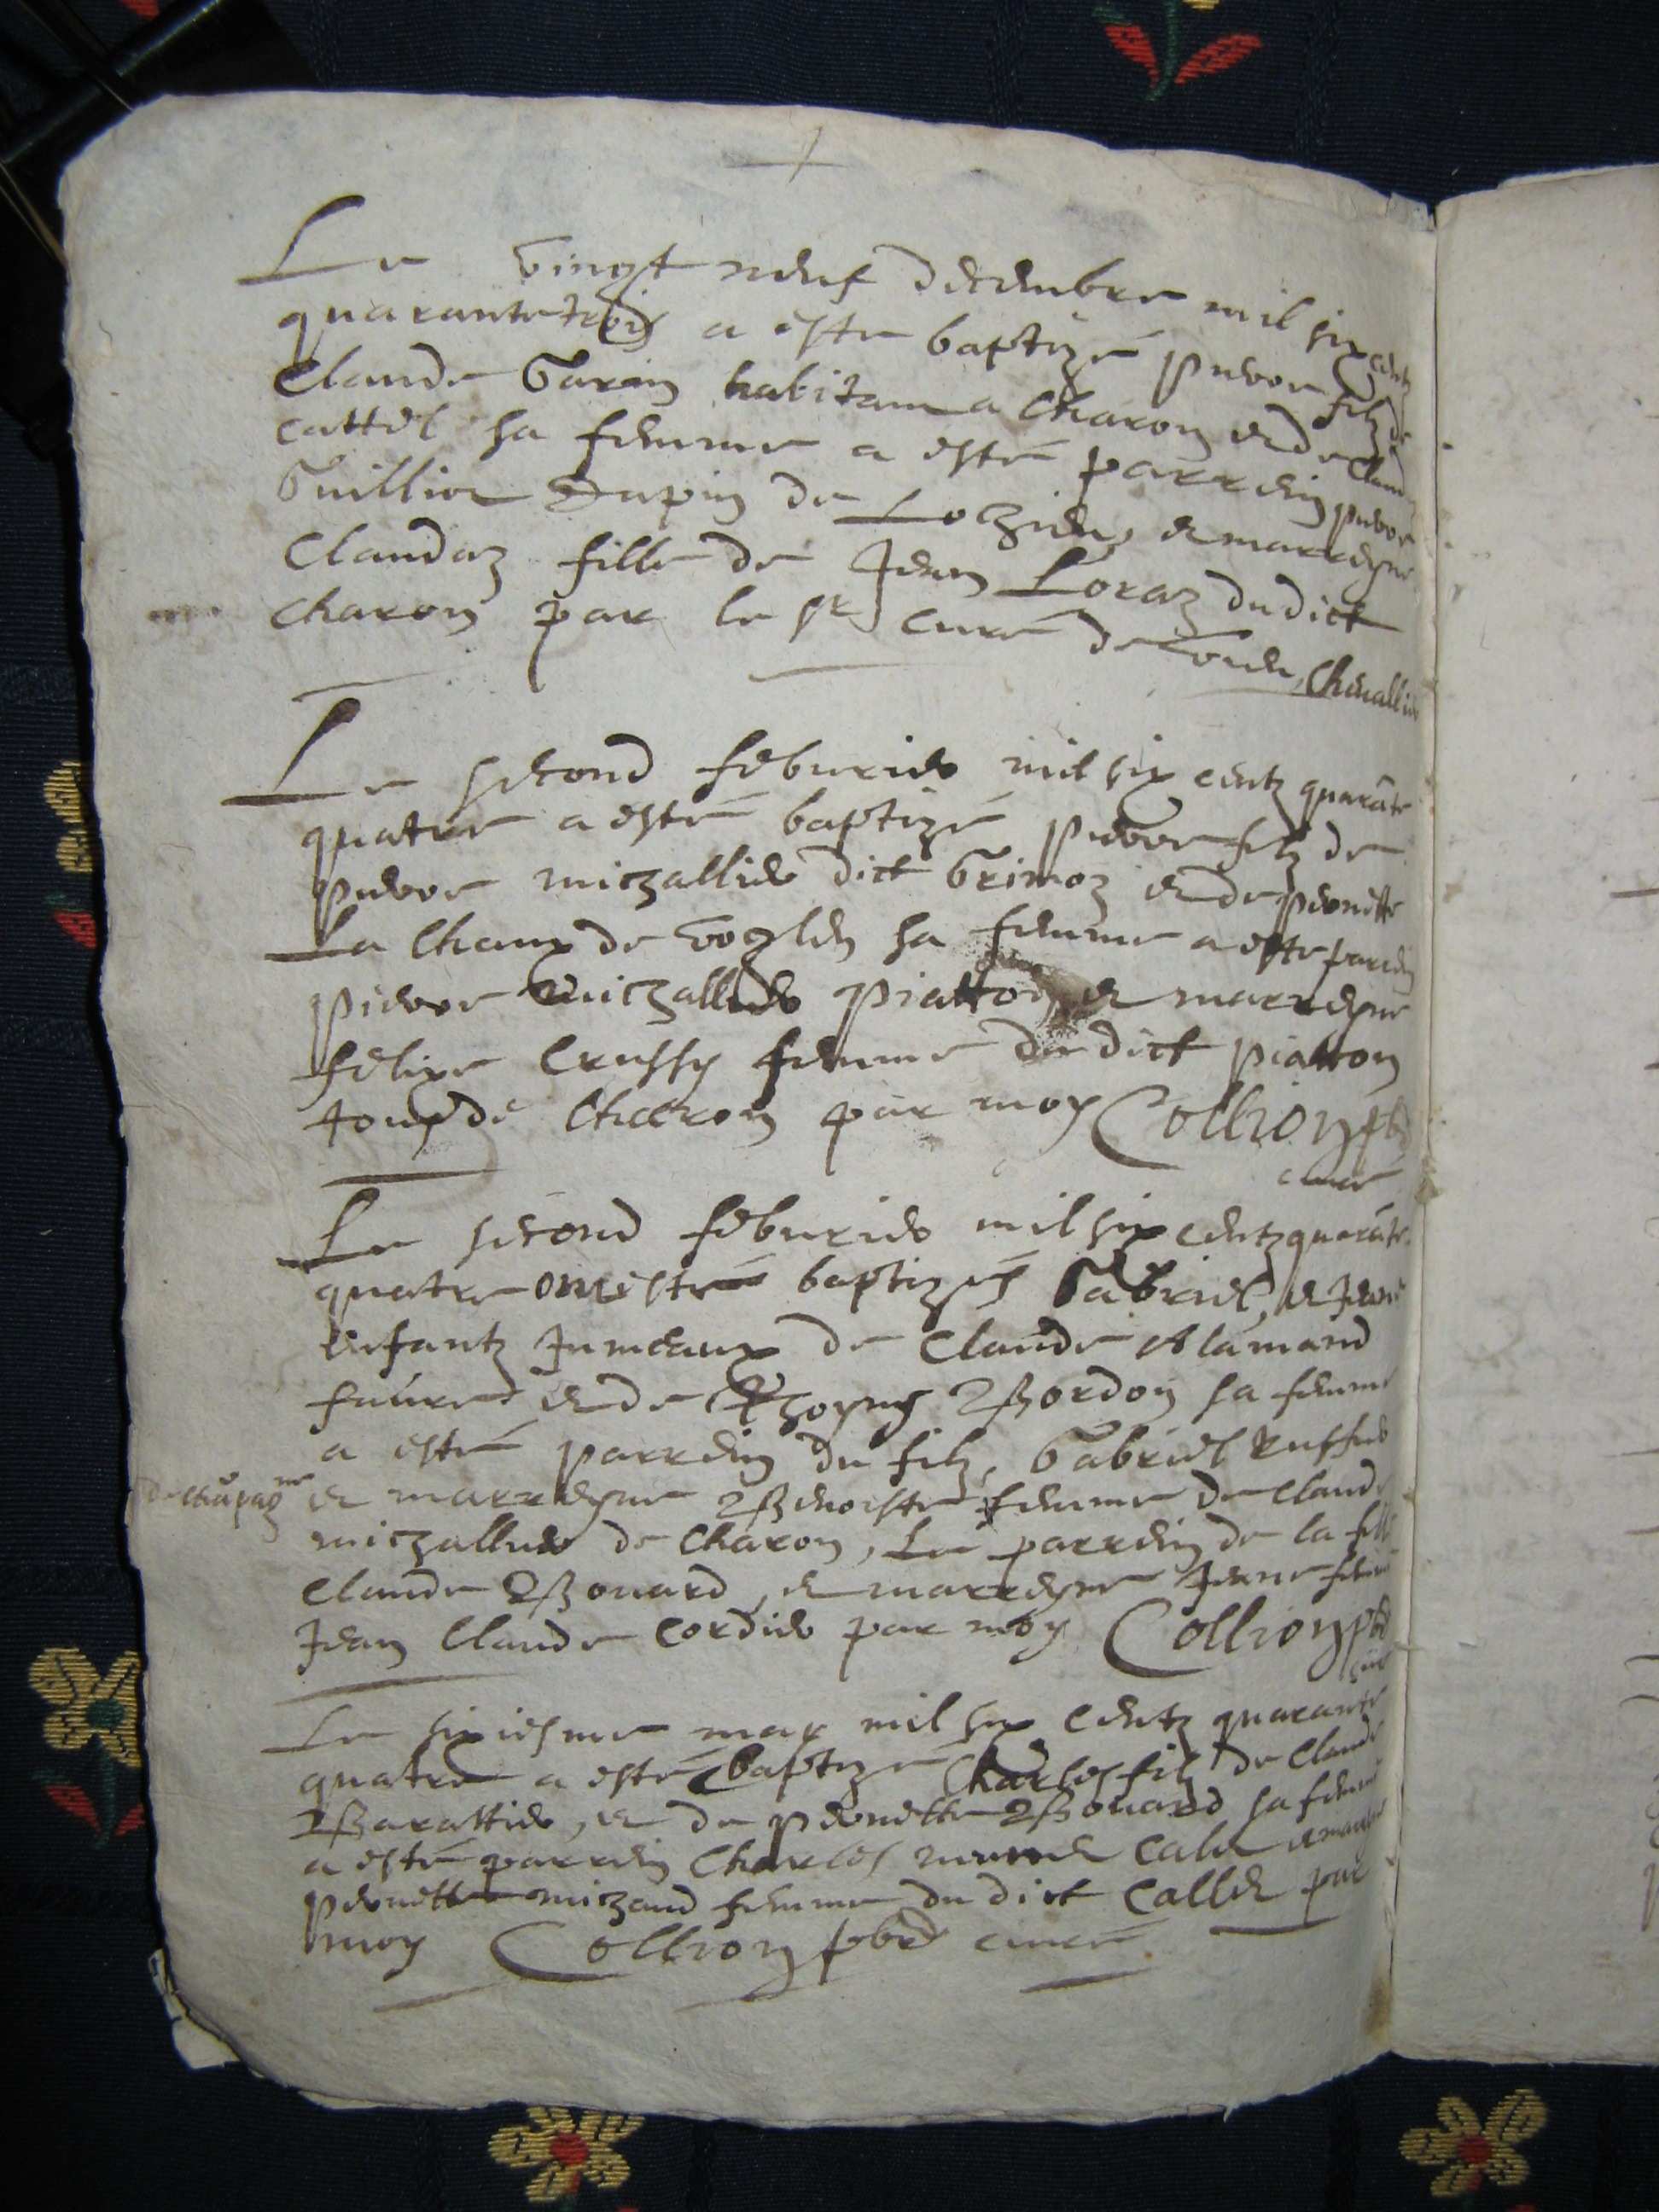 Le vingt neuf decembre mil six centz
quarante trois a este baptizé pierre filz de
Claude Garin habitant a Charon et de Claud
cattel sa femme a esté parrein pierre
Guillier Dupin de Lolzieu et marreyne
Claudaz fille de Jean Loraz dudict
Charon par le sr curé de Chevallie
Le second febvrier mil six centz quarāte
quatre a esté baptizé pierre filz de
pierre miczallier dict Grimoz et de pernette
La Chaux de voglen sa femme a este parrein
pierre miczallier piatton et marreyne
felize Crussy femme du dict piatton
tous de Charon par moy Collion pbr
curé
Le second febvrier mil six centz quarāte
quatre ont esté baptizés Gabriel, et Jeane
enfantz Jumeaux de Claude Alamand
faure et de Bordon sa femme
a esté parrein du filz, Gabriel Ruffier
et marreyne Benoiste femme de Claude
miczallier de Charon, Le parrein de la fille
Claude Bouard, et marreyne Jeane femme
Jean Claude Cordier par moy Collion pbr
curé
Le sixiesme mar mil six centz quarante
quatre a esté baptizé Charles filz de Claude
Barattier, et de pernette Bouard sa femme
a esté parrein Charles Calle et marreyne
pernette miczaud femme du dict Callet par
moy Collion pbr curé